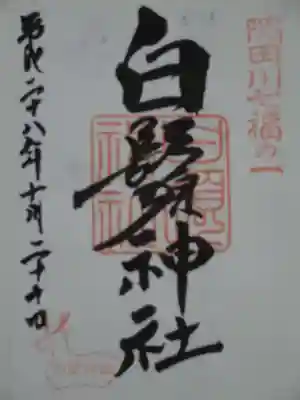 隅田川七福の一
白鬚神社
平成二十八年十月二十日